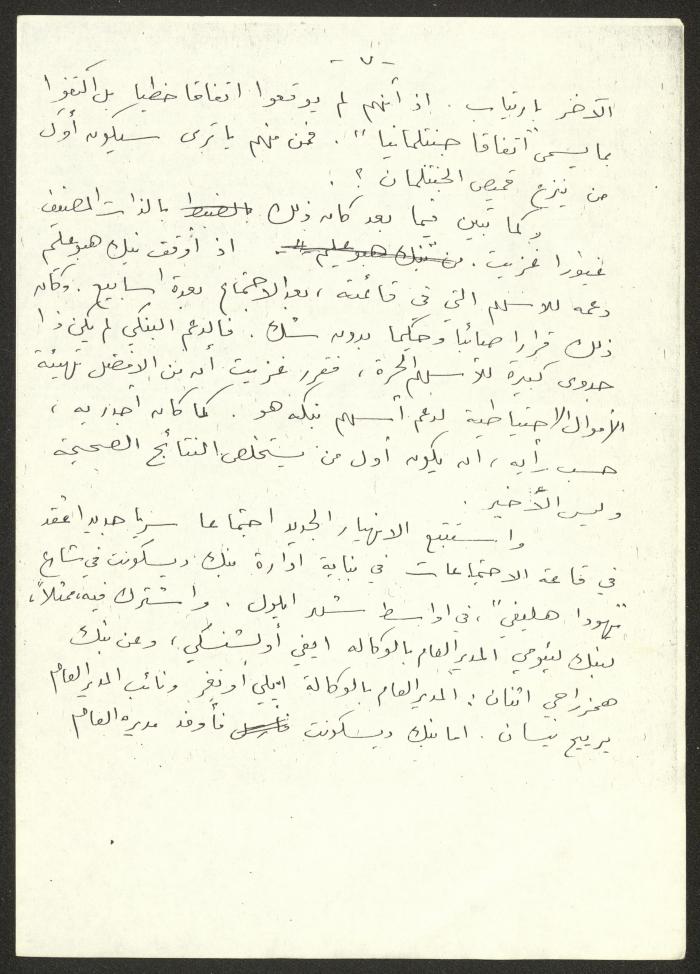 -٧-
الآخر بارتياب. اذ أنهم لم يوقعوا اتفاقا خطيا بل اكتفوا
بما يسمى "اتفاقا جنتلمانيا". فمن منهم يا ترى سيكون أول
من ينزع قميص الجنتلمان ؟.
وكما تبين فيما بعد كان ذلك بالضبط بالذات المصنيف
غيورا غزيت. من بنك هبوعليم. اذ أوقف بنك هبوعليم
دعمه للاسهم التي في قائمته، بعد الاجتماع بعدة اسابيع. وكان
ذلك قرارا صائبا وحكيما بدون شك. فالدعم البنكي لم يكن ذا
جدوى كبيرة للأسهم الحرة، فقرر غزيت أن من الافضل تهيئة
الأموال الاحتياطية لدعم أسهم بنكه هو. كما كان أجدر به،
حسب رأيه، ان يكون أول من يستخلص النتائج الصحيحة
وليس الأخير.
واستتبع الانهيار الجديد اجتماعا سريا جديدا عقد
في قاعة الاجتماعات في بناية ادارة بنك ديسكونت في شارع
"يهودا هليفي"، في اواسط شهر ايلول. واشترك فيه، ممثلا،
لبنك ليئومي المدير العام بالوكالة ايفي أولشنسكي، وعن بنك
همزراحي اثنان: المدير العام بالوكالة ايلي أونغر ونائب المدير العام
يرييح نيسان. اما بنك ديسكونت فأرسل فأوفد مديره العام